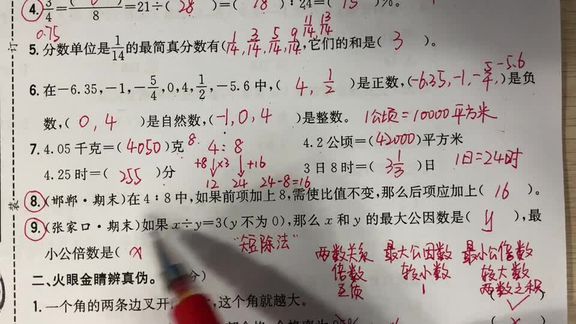 4. 3/4 = ( )/8 = 21÷( 28 ) = ( 18 ) : 24 = ( )%。
0.75
5. 分数单位是1/14的最简真分数有(1/14, 3/14, 5/14, 9/14, 11/14, 13/14),它们的和是( 3 )。
6. 在-6.35,-1,-5/4,0,4,1/2,-5.6中,( 4, 1/2 )是正数,(-6.35,-1,-5/4,-5.6)是负
数,( 0, 4 )是自然数,(-1,0,4 )是整数。 1公顷=10000平方米
7. 4.05千克=(4050)克 8. 4:8 4.2公顷=(42000)平方米
+8 ×3 +16
4.25时=( 255 )分 12 24 24-8=16 3日8时=( 3 1/3 )日 1日=24时
8. (邯郸·期末)在4:8中,如果前项加上8,需使比值不变,那么后项应加上( 16 )。
9. (张家口·期末)如果x÷y=3(y不为0),那么x和y的最大公因数是( y ),最
小公倍数是( x
"短除法" 两数关系 最大公因数 最小公倍数
倍数 较小数 较大数
互质 1 两数之积
二、火眼金睛辨真伪。 分)
1. 一个角的两条边叉开 ,这个角就越大。